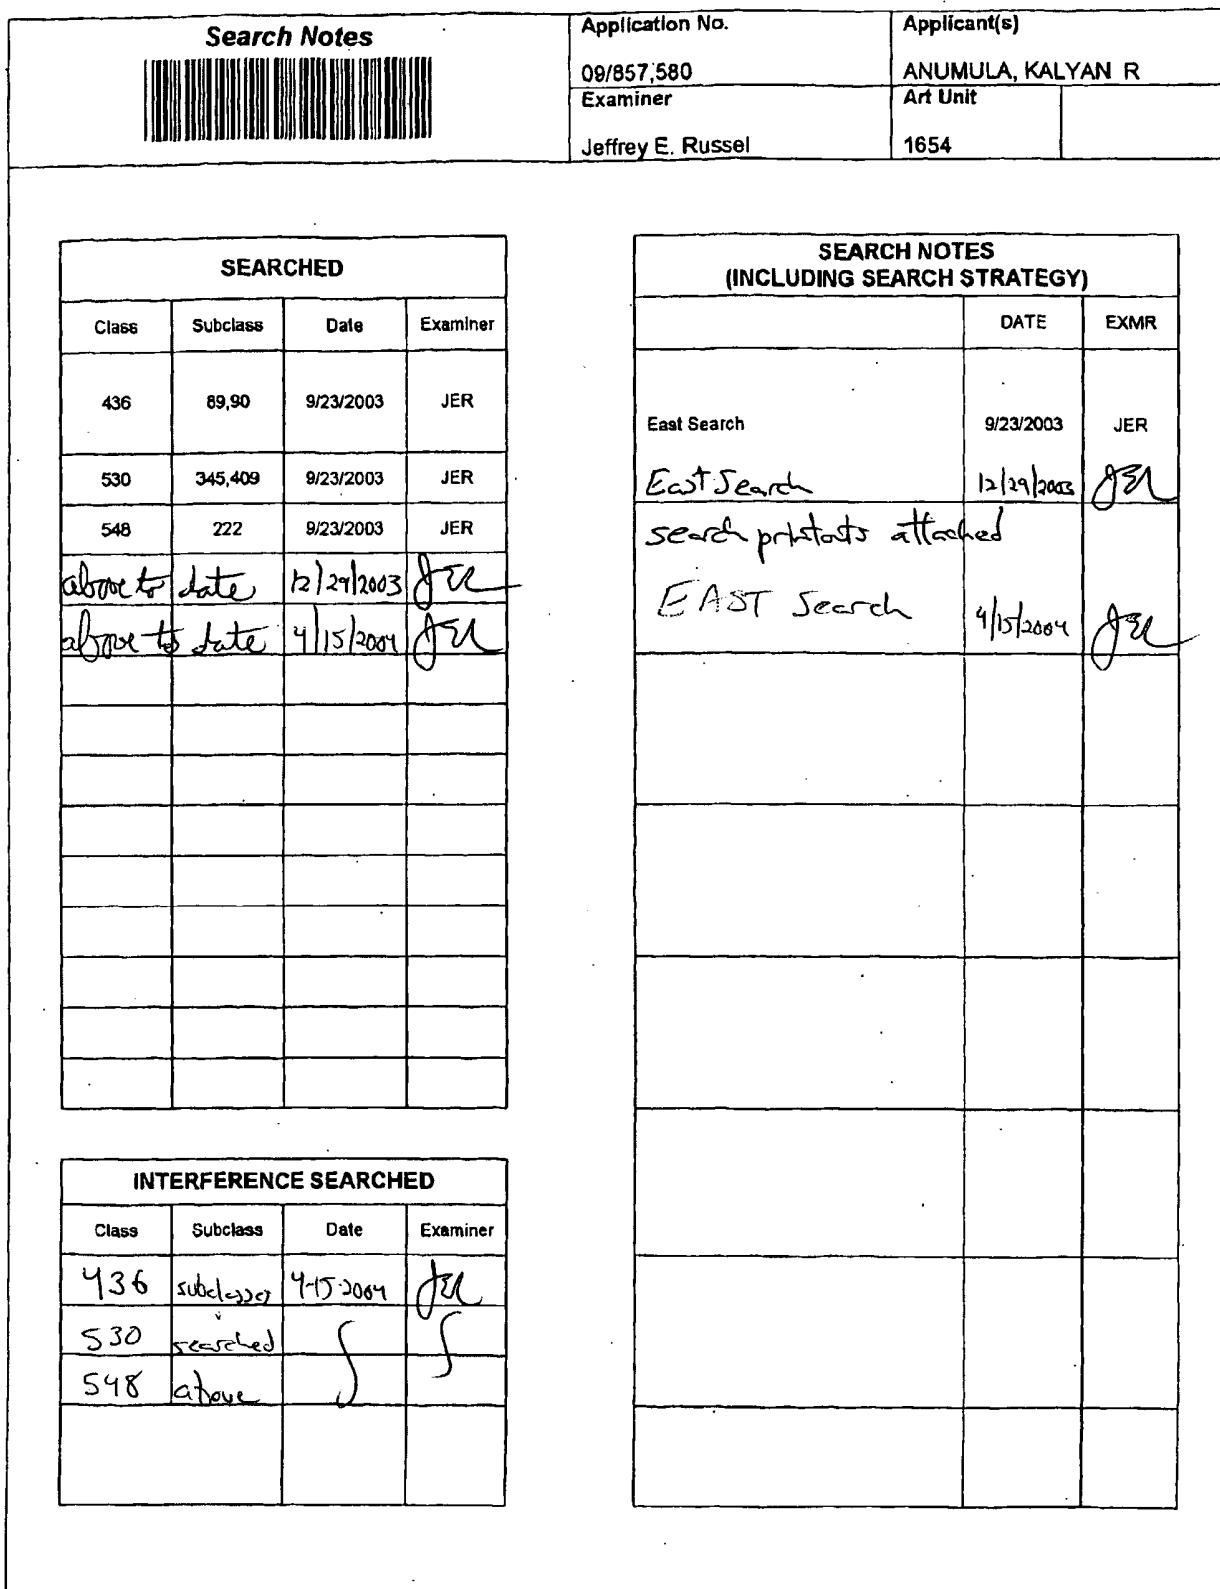 Search Notes
Application No.
Applicant(s)
09/857,580
ANUMULA, KALYAN R
Examiner
Art Unit
Jeffrey E. Russel
1654
SEARCHED
Class Subclass Date Examiner
436 89,90 9/23/2003 JER
530 345,409 9/23/2003 JER
548 222 9/23/2003 JER
above to date 12/29/2003 JER
above to date 4/15/2004 JER
INTERFERENCE SEARCHED
Class Subclass Date Examiner
436 subclasses 4-15-2004 JER
530 searched
548 above
SEARCH NOTES
(INCLUDING SEARCH STRATEGY)
DATE EXMR
East Search 9/23/2003 JER
East Search 12/29/2003 JER
search printouts attached
EAST Search 4/15/2004 JER